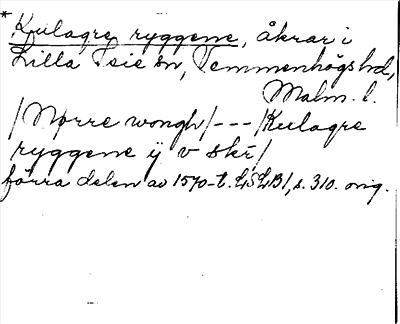 * Kulagre ryggene, åkrar i
Lilla Isie sn, Vemmenhögs hd,
Malm. l.
/Nørre wongh/ --- /Kulagre
ryggene ÿ v skr/
förra delen av 1570-t. LSLB1, s. 310. orig.